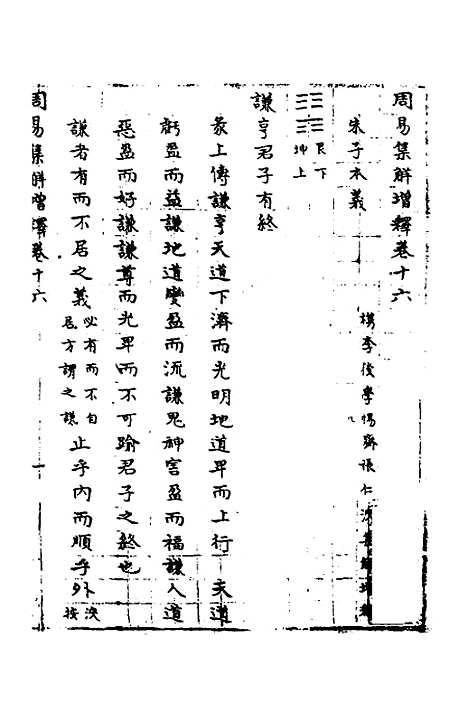 周易集解增釋卷十六
檇李後學惕齋張仁
朱子本義
艮下
坤上
謙亨君子有終
彖上傳謙亨天道下濟而光明地道卑而上行 天道
虧盈而益謙地道變盈而流謙鬼神害盈而福謙人道
惡盈而好謙謙尊而光卑而不可踰君子之終也
謙者有而不居之義必有而不自居方謂之謙止乎內而順乎外
周易集解增釋卷十六 一